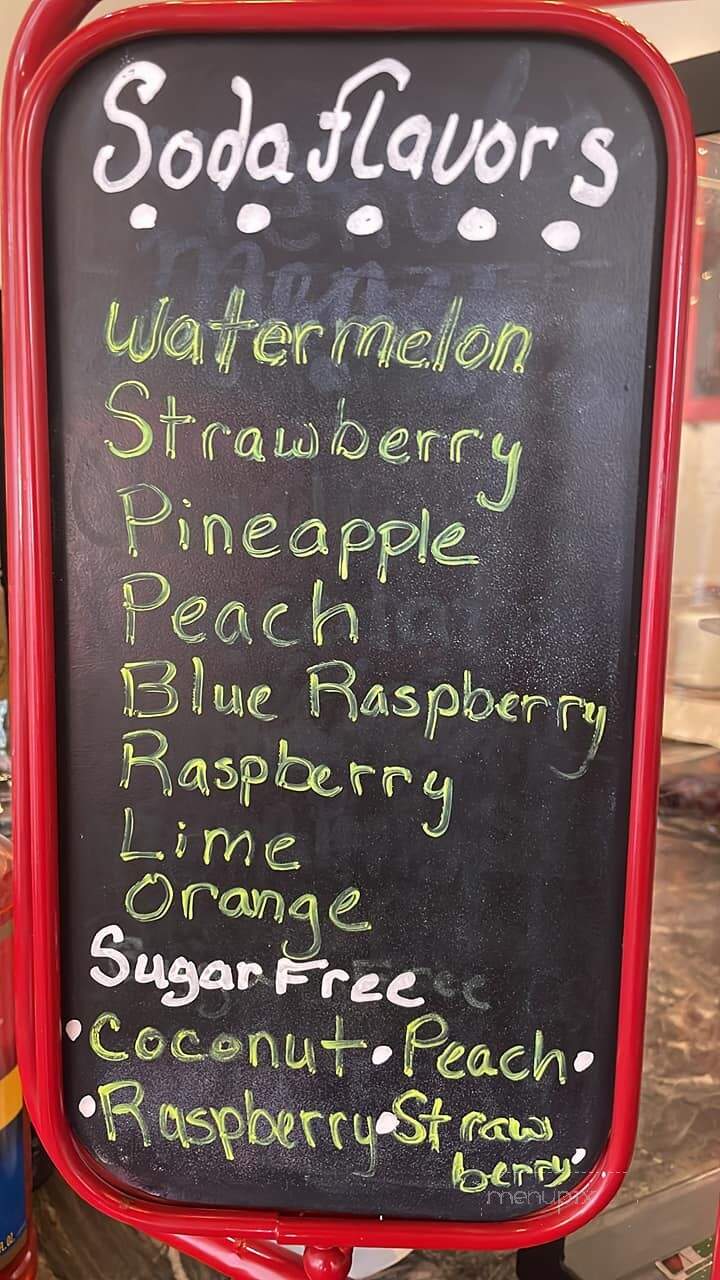 Soda flavors
Watermelon
Strawberry
Pineapple
Peach
Blue Raspberry
Raspberry
Lime
Orange
Sugar Free
• Coconut • Peach •
• Raspberry • Straw
berry •
menupix